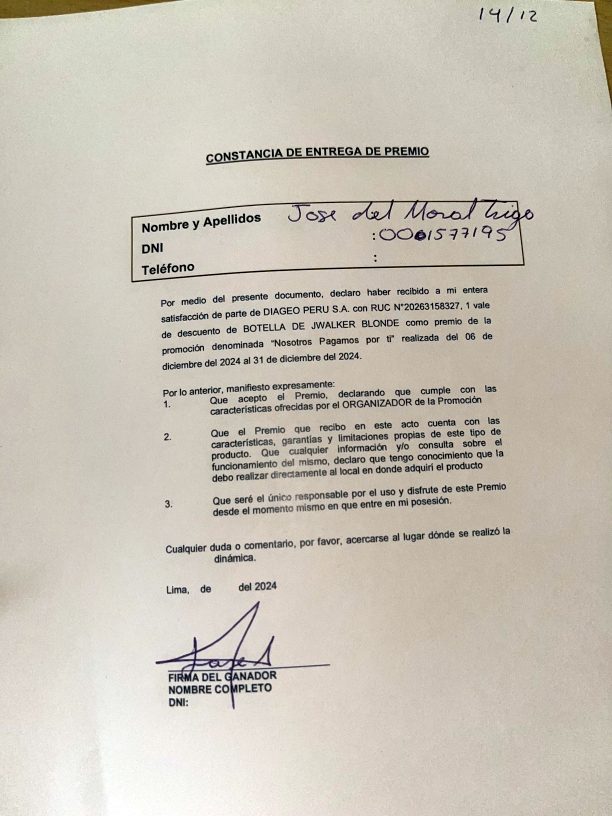 14/12
CONSTANCIA DE ENTREGA DE PREMIO
Nombre y Apellidos Jose del Moral Trigo
DNI :0001577195
Teléfono :
Por medio del presente documento, declaro haber recibido a mi entera
satisfacción de parte de DIAGEO PERU S.A. con RUC N°20263158327, 1 vale
de descuento de BOTELLA DE JWALKER BLONDE como premio de la
promoción denominada "Nosotros Pagamos por ti" realizada del 06 de
diciembre del 2024 al 31 de diciembre del 2024.
Por lo anterior, manifiesto expresamente:
1. Que acepto el Premio, declarando que cumple con las
características ofrecidas por el ORGANIZADOR de la Promoción
2. Que el Premio que recibo en este acto cuenta con las
características, garantías y limitaciones propias de este tipo de
producto. Que cualquier información y/o consulta sobre el
funcionamiento del mismo, declaro que tengo conocimiento que la
debo realizar directamente al local en donde adquirí el producto
3. Que seré el único responsable por el uso y disfrute de este Premio
desde el momento mismo en que entre en mi posesión.
Cualquier duda o comentario, por favor, acercarse al lugar dónde se realizó la
dinámica.
Lima, de del 2024
FIRMA DEL GANADOR
NOMBRE COMPLETO
DNI: